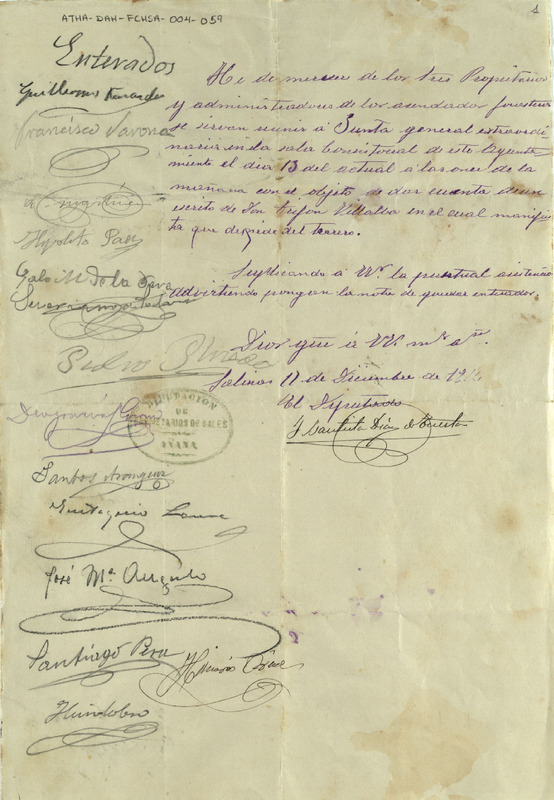 ATHA-DAH-FCHSA-004-059
1
Enterados
Guillermo
Francisco Savona
Hipolito Paz
Gabriel de la
Severiano
Pedro
Santos
Eustaquio
José Mª Angulo
Santiago Pera
He de merecer de los tres Propietarios
y administradores de los acendados forasteros
se sirvan reunir á Junta general extraordi
naria en la sala Consistorial de este Ayunta
miento el dia 13 del actual á las once de la
mañana con el objeto de dar cuenta de un
escrito de Don Trifon Villalba en el cual manifies
ta que despide del
Suplicando á Vs la puntual asistencia
advirtiendo pongan la nota de quedar enterados.
Dios gue á VV. ms as.
Salinas 11 de Diciembre de
El Diputado
J Bautista Diaz de Tuesta
DIPUTACION
DE
PROPIETARIOS DE SALES
AÑANA